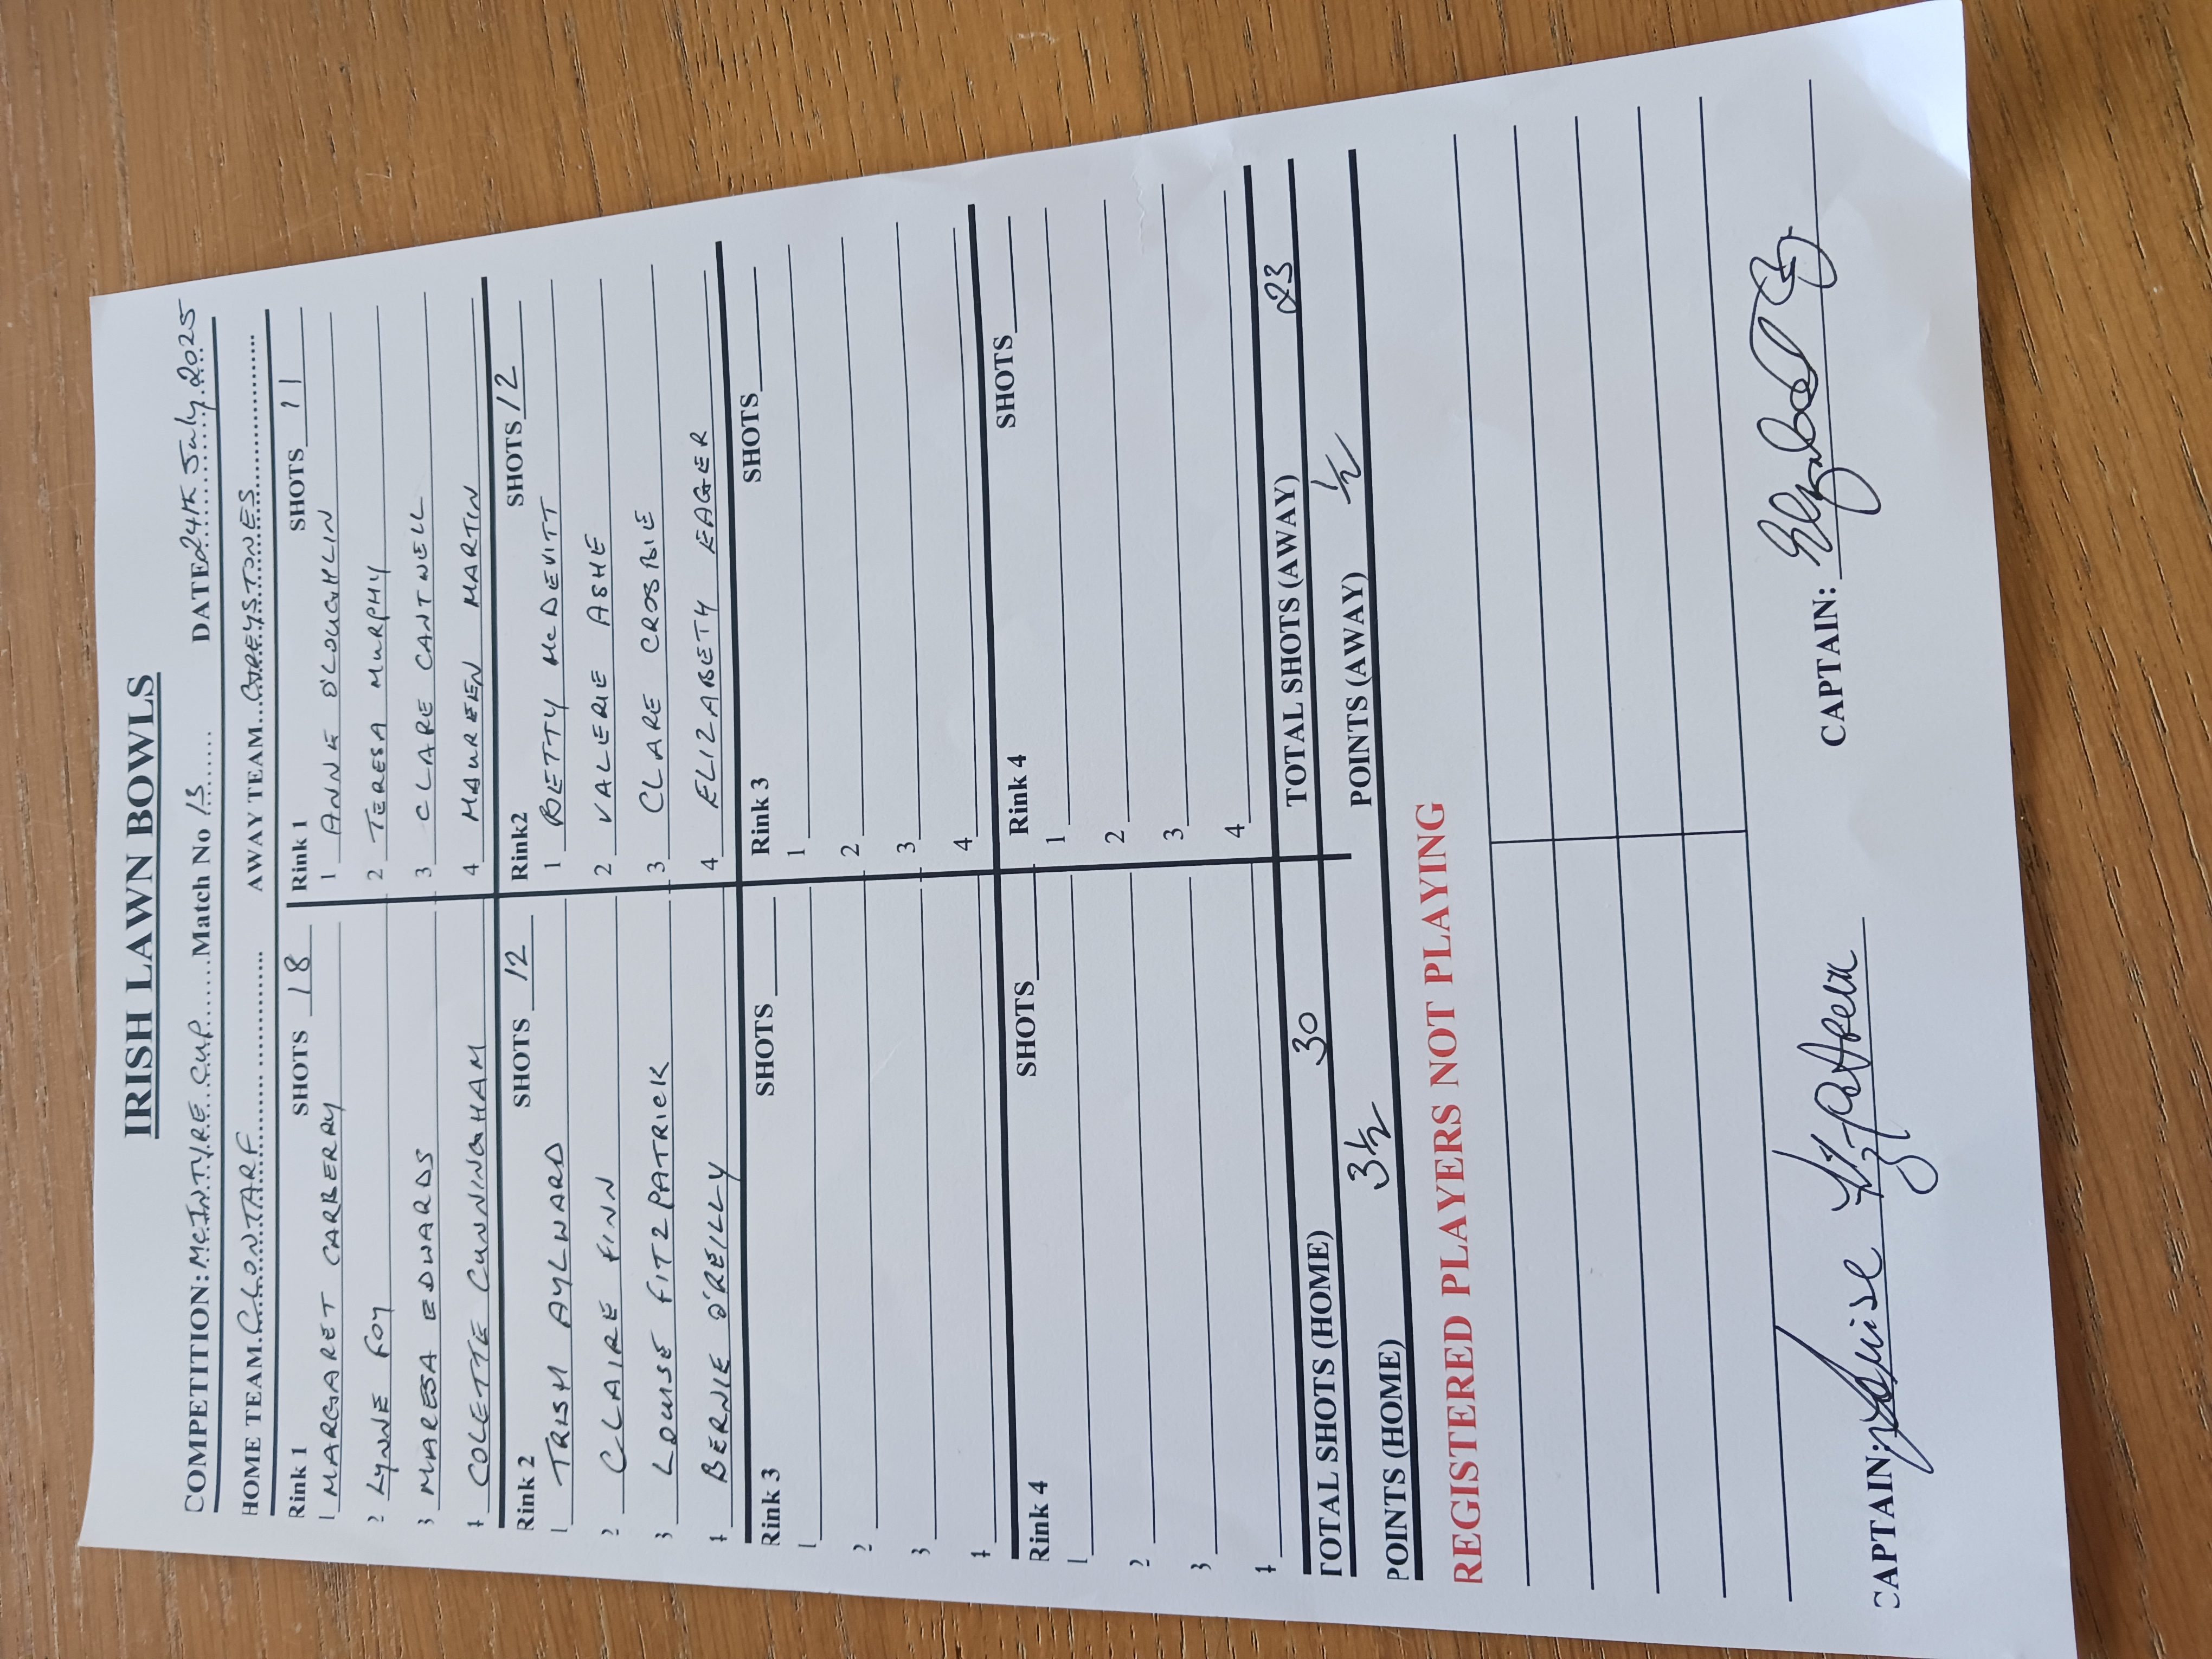 IRISH LAWN BOWLS
COMPETITION: McINTYRE CUP Match No 13 DATE 24th July 2025
HOME TEAM. CLONTARF AWAY TEAM.. GREYSTONES
Rink 1 SHOTS 18 Rink 1 SHOTS 11
1 MARGARET CARBERRY 1 ANNE O'LOUGHLIN
2 LYNNE FOY 2 TERESA MURPHY
3 MARESA EDWARDS 3 CLARE CANTWELL
4 COLETTE CUNNINGHAM 4 MAUREEN MARTIN
Rink 2 SHOTS 12 Rink2 SHOTS 12
1 TRISH AYLWARD 1 BETTY McDEVITT
2 CLAIRE FINN 2 VALERIE ASHE
3 LOUISE FITZPATRICK 3 CLARE CROSBIE
4 BERNIE O'REILLY 4 ELIZABETH EAGER
Rink 3 SHOTS Rink 3 SHOTS
1 1
2 2
3 3
4 4
Rink 4 SHOTS Rink 4 SHOTS
1 1
2 2
3 3
4 4
TOTAL SHOTS (HOME) 30 TOTAL SHOTS (AWAY) 23
POINTS (HOME) 3½ POINTS (AWAY) ½
REGISTERED PLAYERS NOT PLAYING
CAPTAIN: Louise Fitzpatrick CAPTAIN: